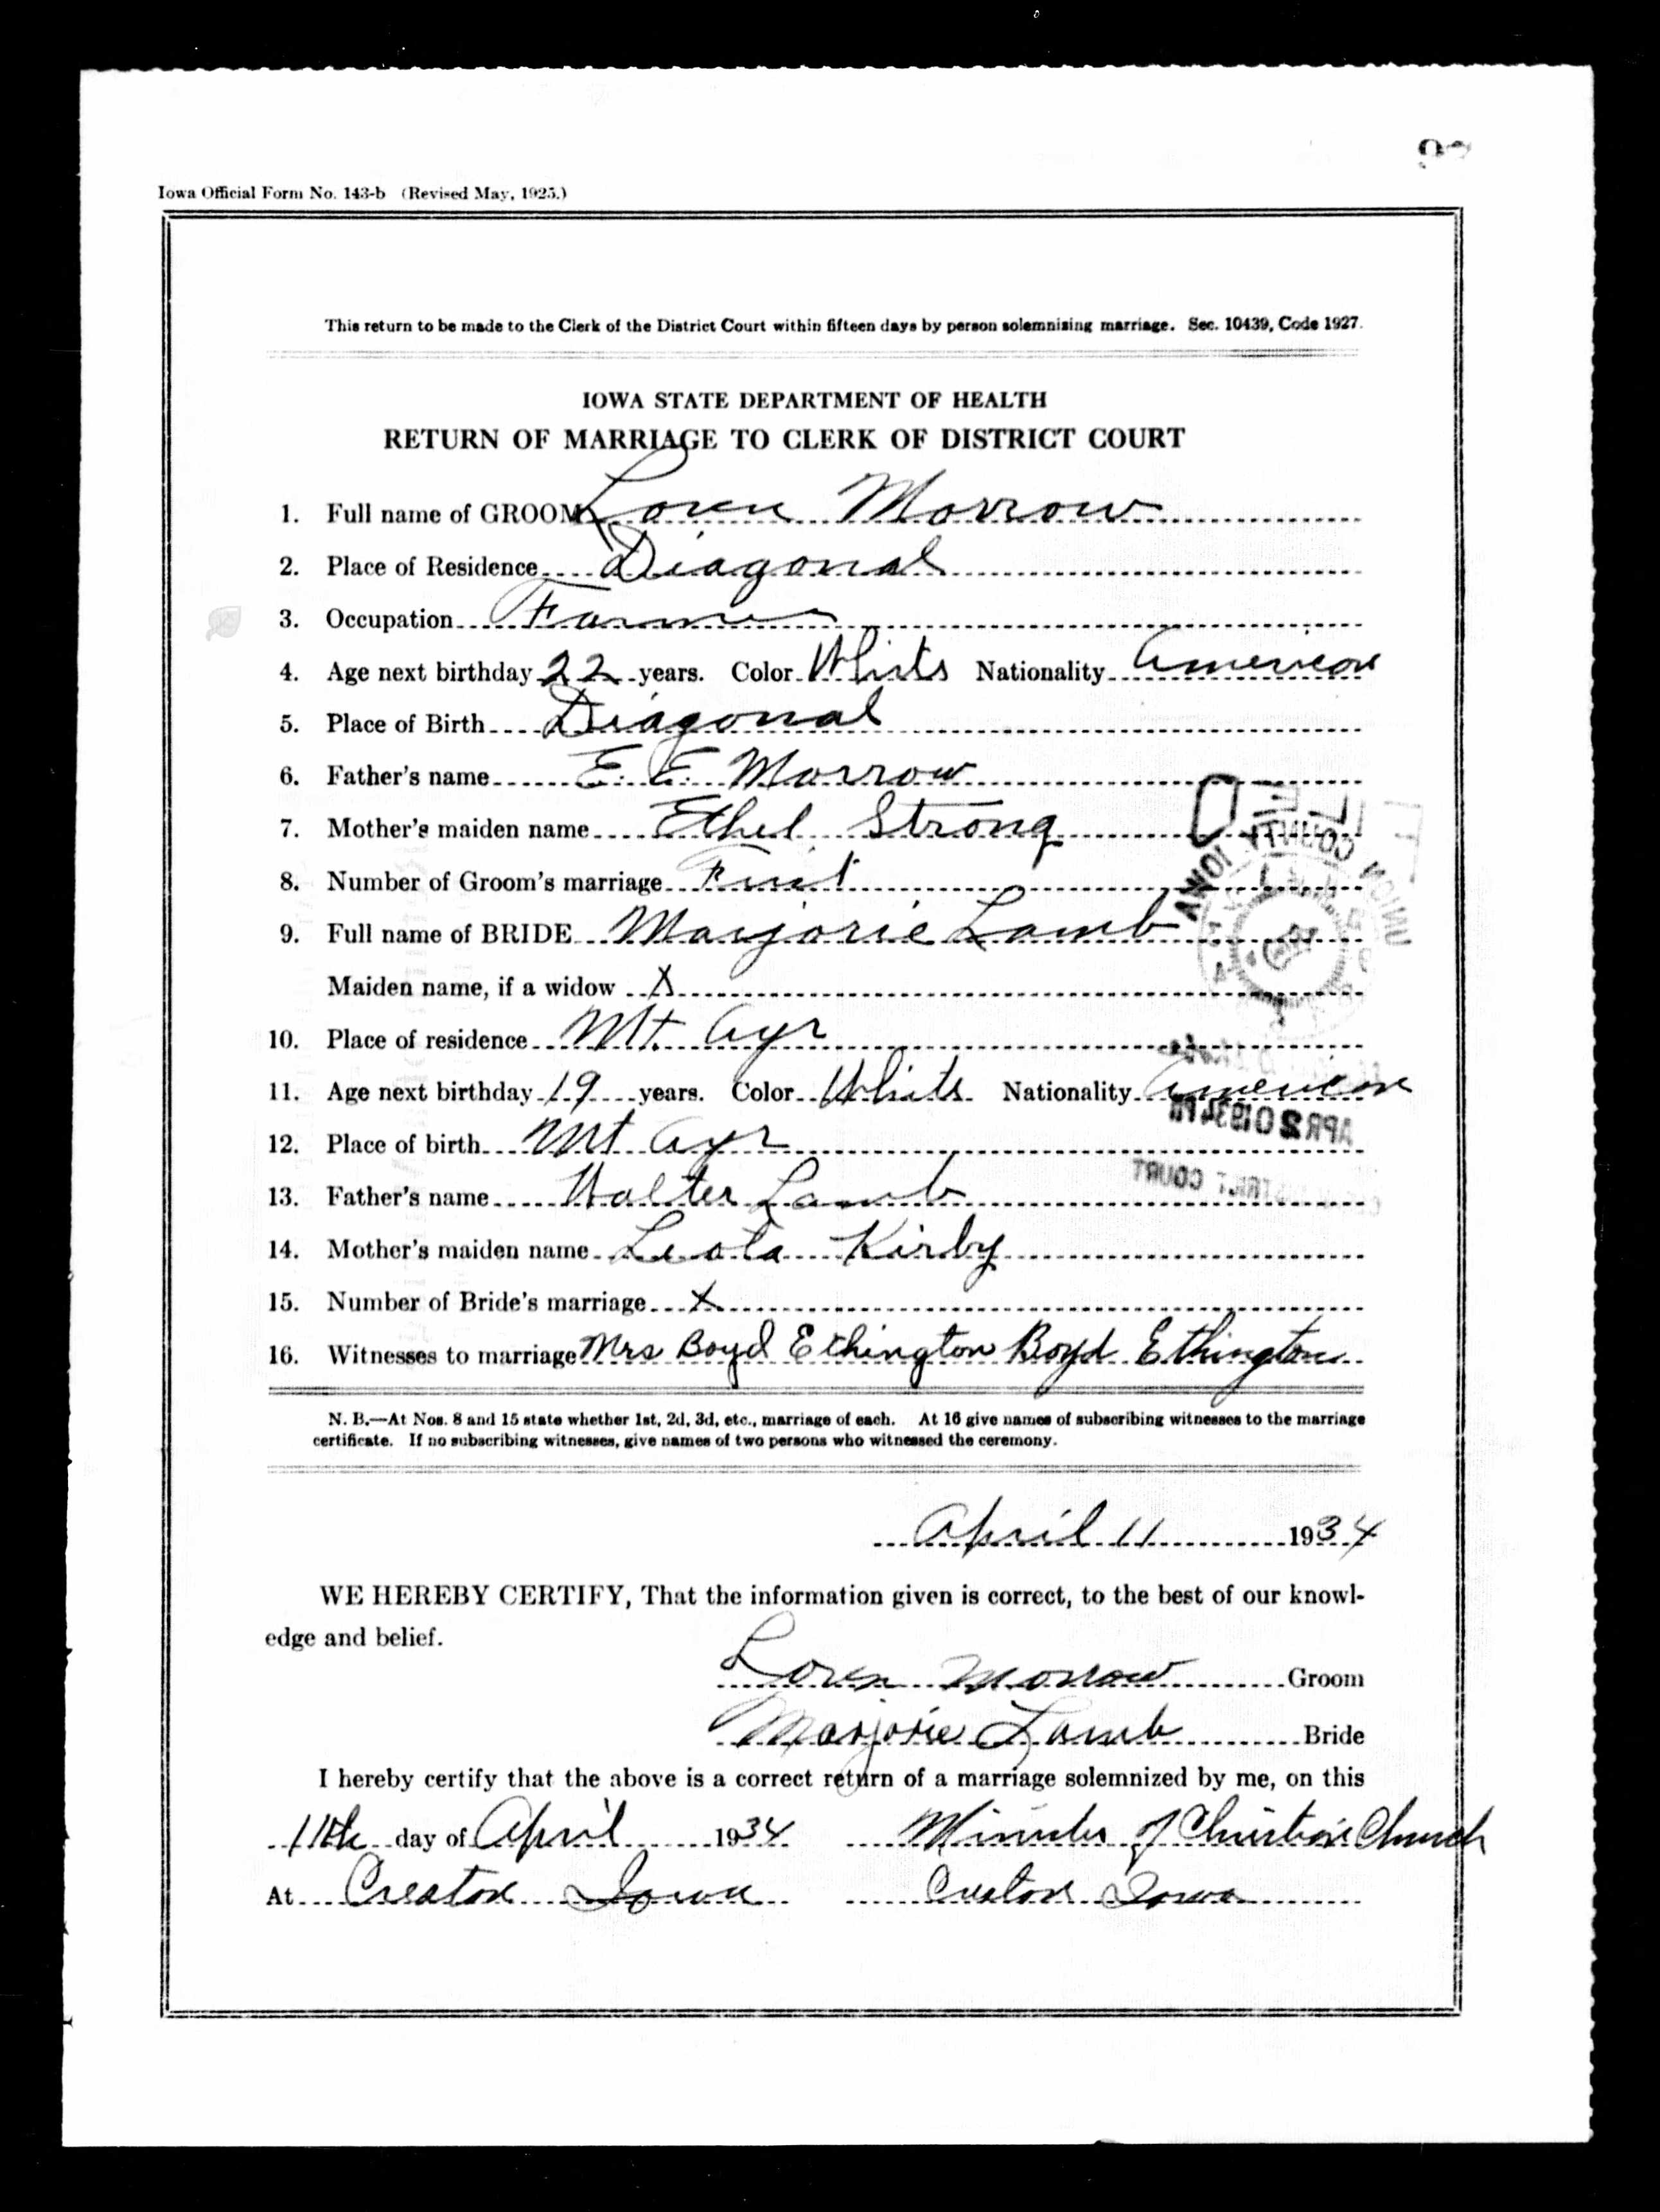 Iowa Official Form No. 143-b (Revised May, 1925.)
This return to be made to the Clerk of the District Court within fifteen days by person solemnizing marriage. Sec. 10439, Code 1927.
IOWA STATE DEPARTMENT OF HEALTH
RETURN OF MARRIAGE TO CLERK OF DISTRICT COURT
1. Full name of GROOM Loren Morrow
2. Place of Residence Diagonal
3. Occupation Farmer
4. Age next birthday 22 years. Color White Nationality American
5. Place of Birth Diagonal
6. Father's name E. E. Morrow
7. Mother's maiden name Ethel Strong
8. Number of Groom's marriage First
9. Full name of BRIDE Marjorie Lamb
Maiden name, if a widow X
10. Place of residence Mt. Ayr
11. Age next birthday 19 years. Color White Nationality American
12. Place of birth Mt Ayr
13. Father's name Walter Lamb
14. Mother's maiden name Leota Kirby
15. Number of Bride's marriage X
16. Witnesses to marriage Mrs Boyd Ethington Boyd Ethington
FILED
UNION COUNTY IOWA
APR 20 1934
DISTRICT COURT
N. B.—At Nos. 8 and 15 state whether 1st, 2d, 3d, etc., marriage of each. At 16 give names of subscribing witnesses to the marriage
certificate. If no subscribing witnesses, give names of two persons who witnessed the ceremony.
April 11 1934
WE HEREBY CERTIFY, That the information given is correct, to the best of our knowl-
edge and belief.
Loren Morrow Groom
Marjorie Lamb Bride
I hereby certify that the above is a correct return of a marriage solemnized by me, on this
11th day of April 1934 Minister of Christian Church
At Creston Iowa Creston Iowa